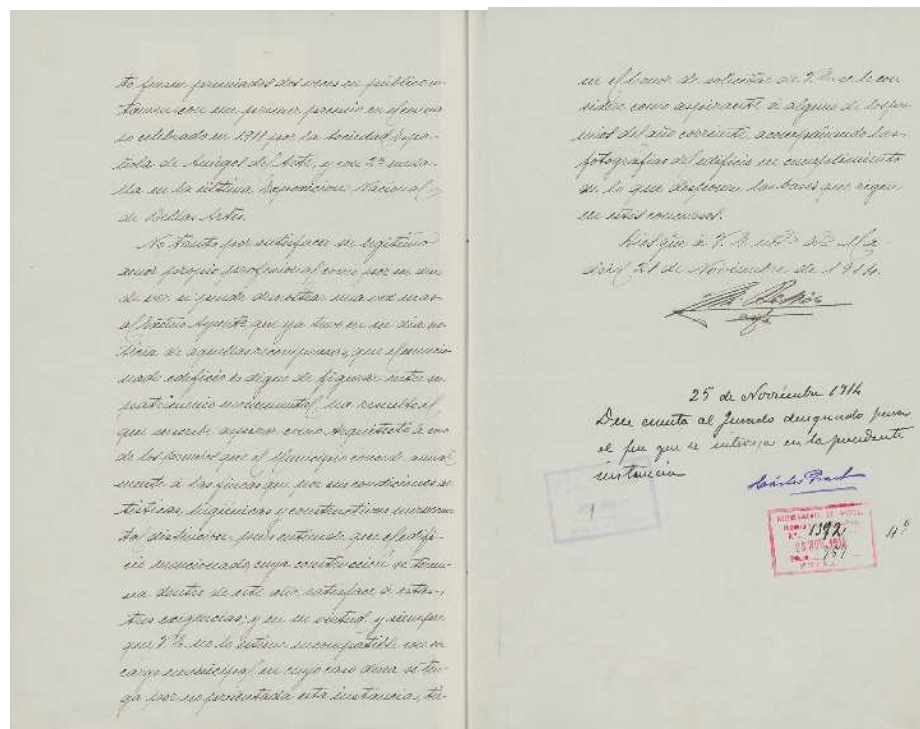 to fueron premiados dos veces en público cer-
tamen con un primer premio en el concur-
so celebrado en 1911 por la Sociedad Espa-
ñola de Amigos del Arte, y con 2ª meda-
lla en la última Exposicion Nacional
de Bellas Artes.
No tanto por satisfacer su legítimo
amor propio profesional como por un
deber, si puede demostrar una vez mas
al Excmo Ayuntº que ya tuvo en su dia no-
ticia de aquellas recompensas, que el mencio-
nado edificio es digno de figurar entre su
patrimonio monumental, ha resuelto el
que suscribe aspirar como Arquitecto á uno
de los premios que el Municipio concede anual
mente á las fincas que por sus condiciones ar-
tísticas, higiénicas y constructivas merecen
tal distincion, pues entiende que el edifi-
cio mencionado, cuya construcción se termi-
na dentro de este año, satisface á estas
tres exigencias; y en su virtud y siempre
que V.E. no lo estime incompatible con su
cargo municipal en cuyo caso desea se ten-
ga por no presentada esta instancia, tie-
ne el honor de solicitar de V.E. se le con
sidere como aspirante á alguno de los pre-
mios del año corriente, acompañando las
fotografías del edificio en cumplimiento
de lo que disponen las bases que rigen
en estos concursos.
Dios gue á V.E. ms as Ma
drid 21 de Noviembre de 1914.
25 de Noviembre 1914
Dese cuenta al Jurado designado para
el fin que se interesa en la precedente
instancia
AYUNTAMIENTO DE MADRID
1392
25 NOV. 1914